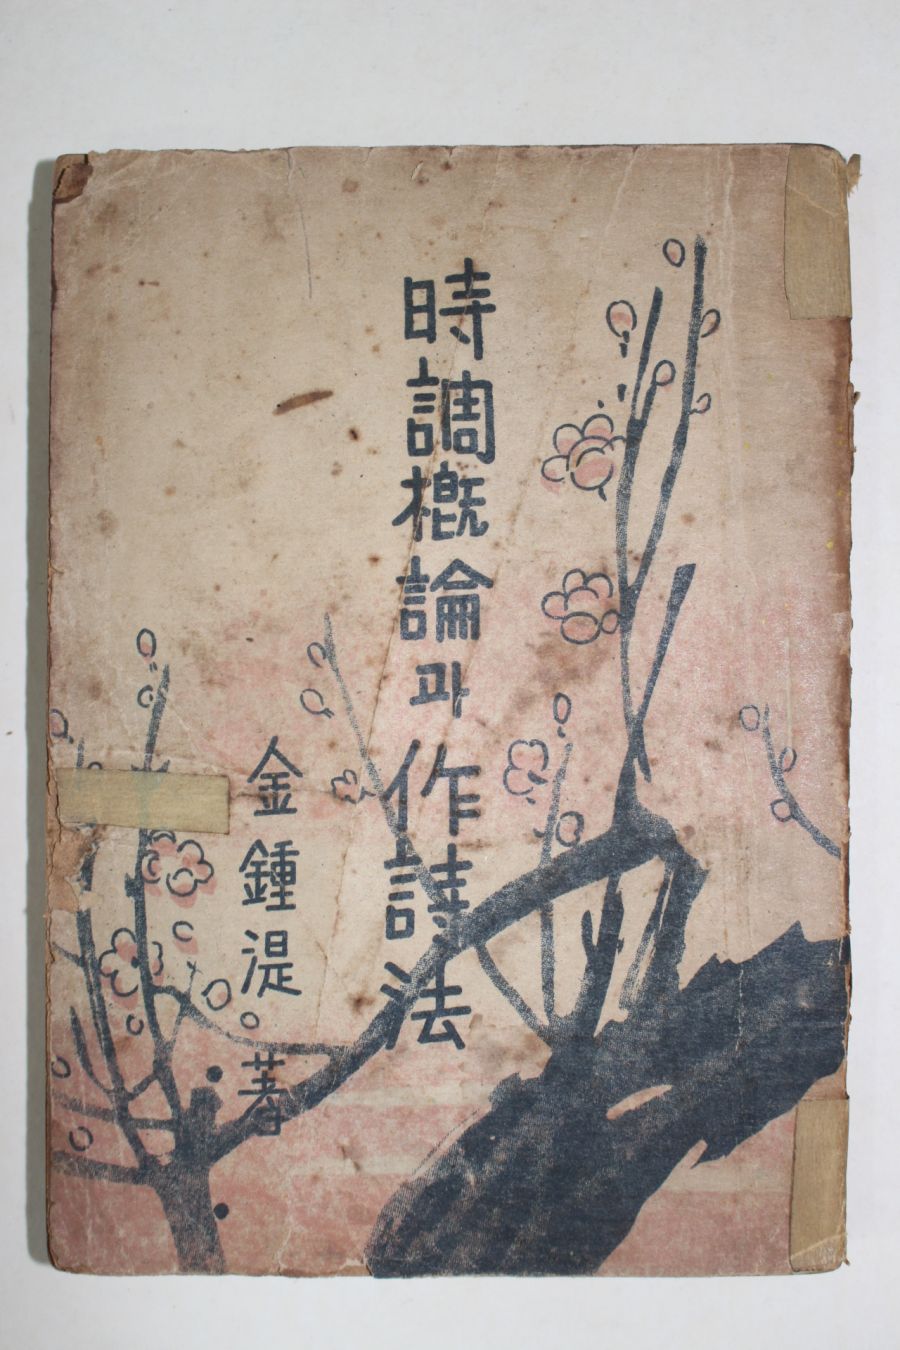 時調概論과作詩法
金鍾湜 著